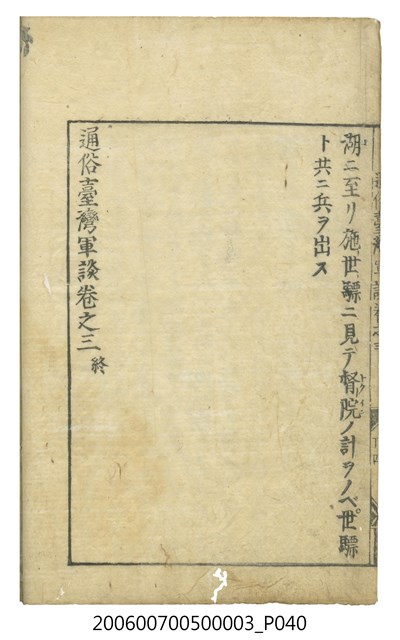 湖ニ至リ施世驃ニ見テ督院ノ計ヲノベ世驃
ト共ニ兵ヲ出ス
通俗臺灣軍談卷之三 終
200600700500003_P040